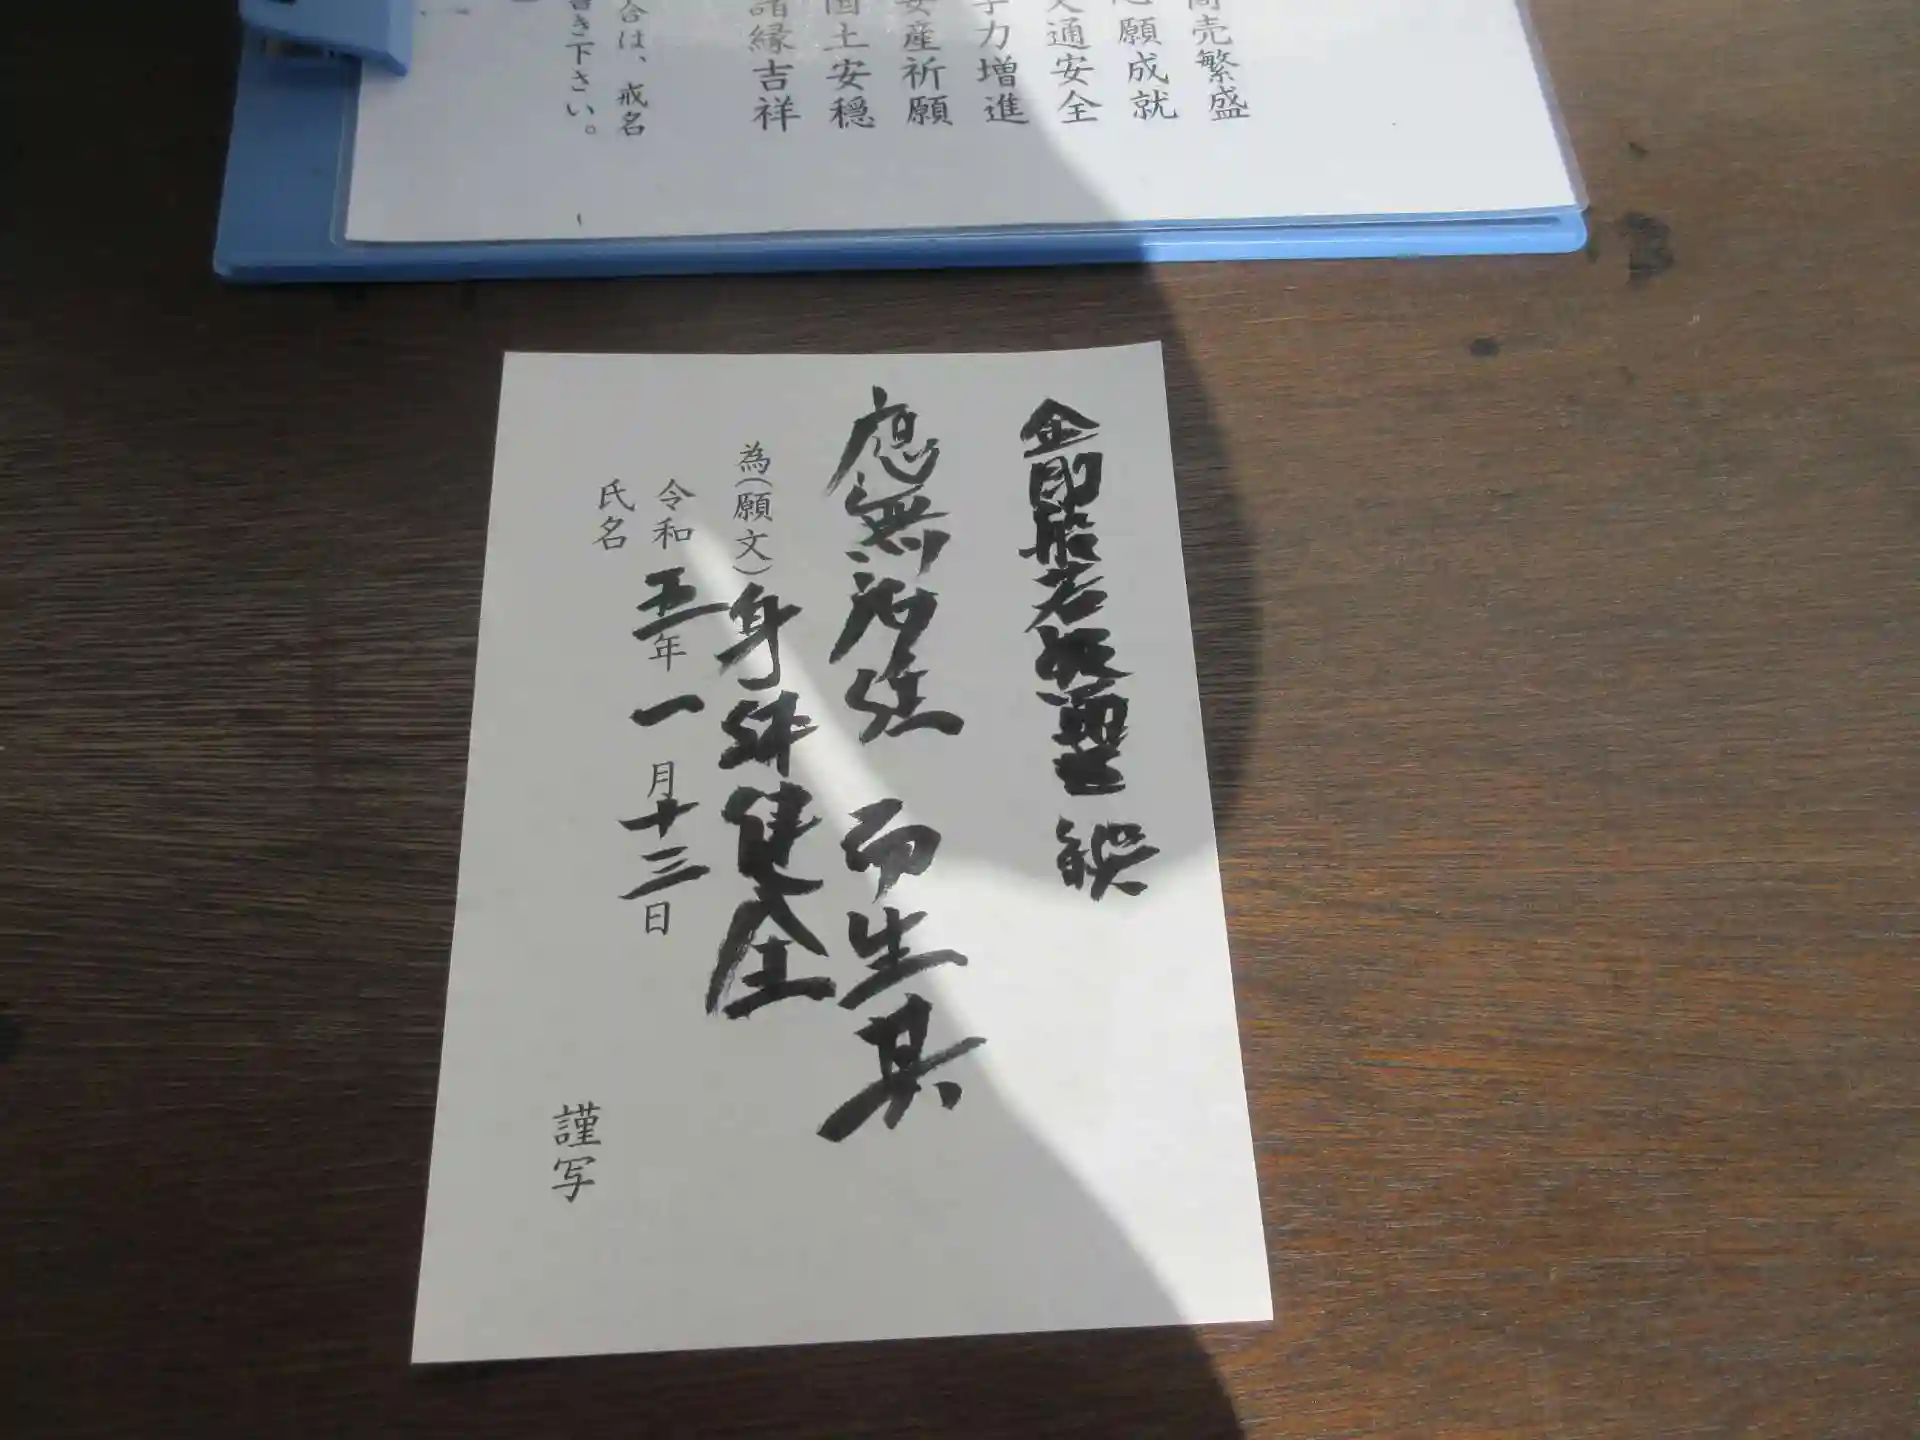 売繁盛
願成就
通安全
力増進
産祈願
国土安穏
諸縁吉祥
合は、戒名
書き下さい。
金剛般若波羅蜜 経
應無所住 而生其
為(願文)身体健全
令和五年一月十三日
氏名
謹写